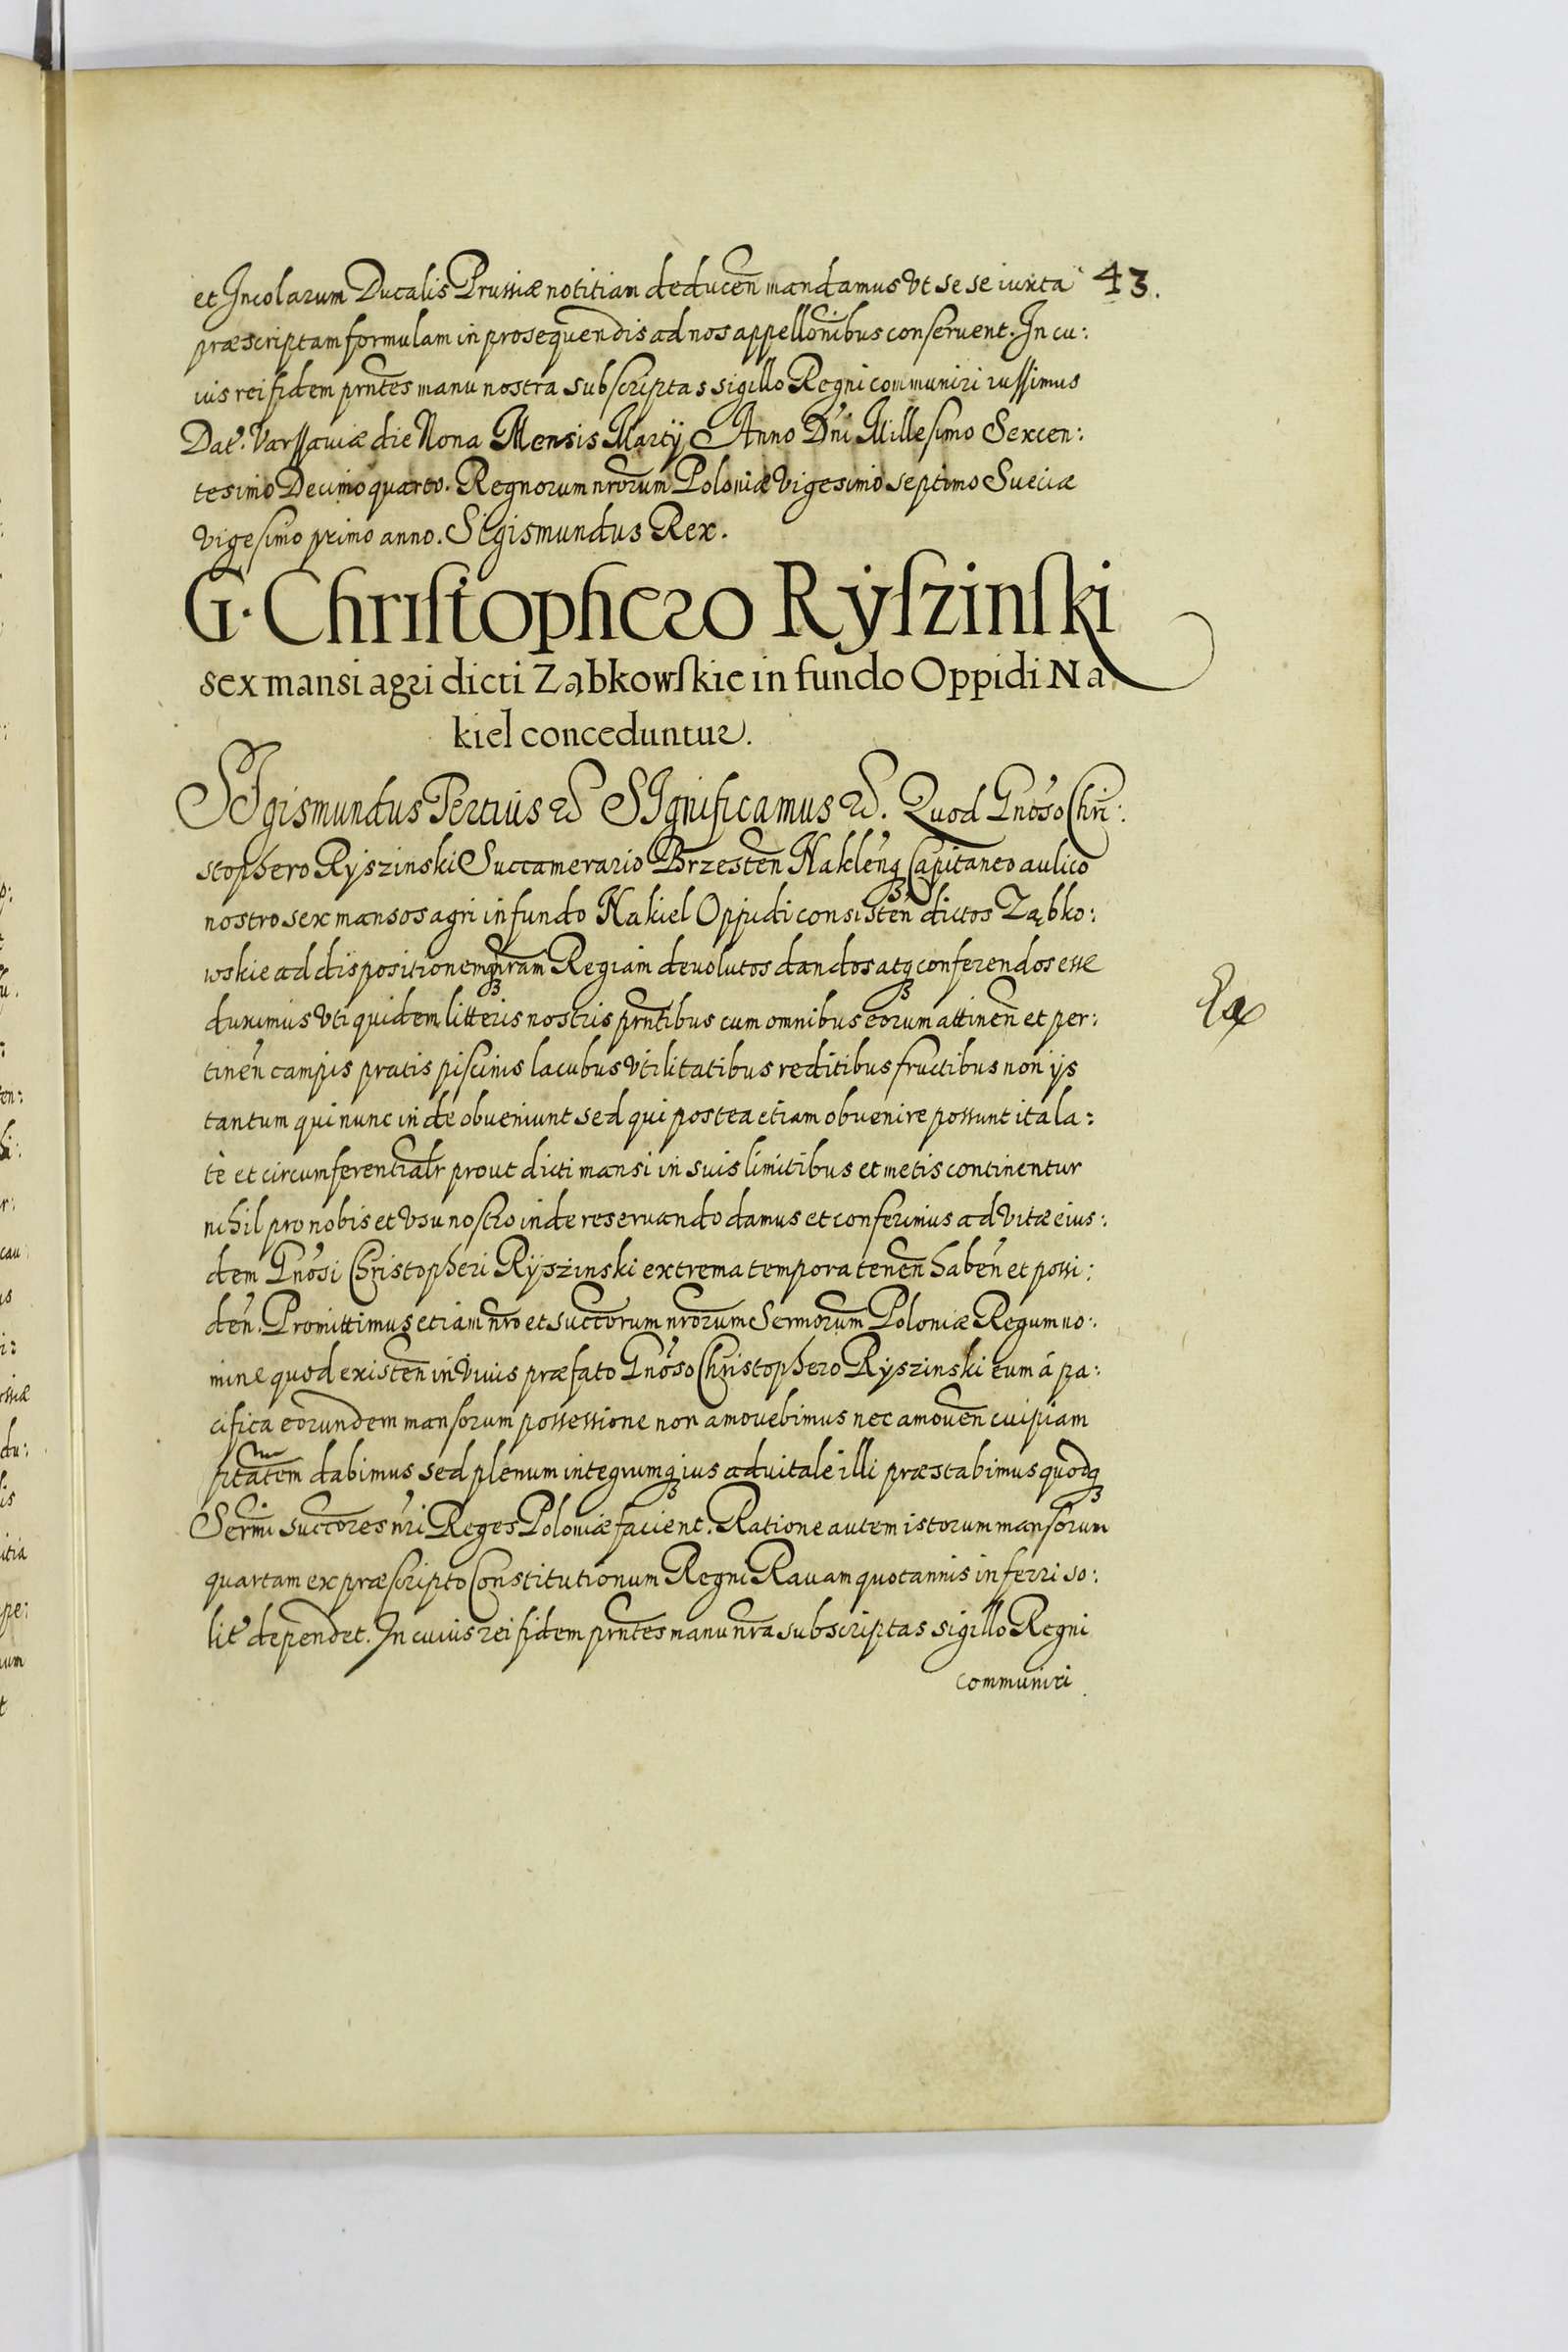 et Incolarum Ducalis Prussiæ notitiam deducen̄ mandamus vt se se iuxta 43.
præscriptam formulam in prosequendis ad nos appellōnibus conseruent. In cu:
ius rei fidem prn̄tes manu nostra subscriptas sigillo Regni communiri iussimus
Dat. Varssauiæ die Nona Mensis Martÿ Anno Dn̄i Millesimo Sexcen:
tesimo Decimo quarto. Regnorum nrōrum Poloniæ vigesimo septimo Sueciæ
vigesimo primo anno. Sigismundus Rex.
G. Christophero Rÿszinski
sex mansi agri dicti Ząbkowskie in fundo Oppidi Na
kiel conceduntur.
SIgismundus Tertius &c SIgnificamus &c. Quod Gn̄oso Chri:
stophero Rÿszinski Succamerario Brzesten̄ Naklen̄q Capitaneo aulico
nostro sex mansos agri in fundo Nakiel Oppidi consisten̄ dictos Ząbko:
wskie ad dispositionemq nr̄am Regiam deuolutos dandos atq conferendos esse
duximus vti quidem litteris nostris prn̄tibus cum omnibus eorum attinen̄ et per:
tinen̄ campis pratis piscinis lacubus vtilitatibus reditibus fructibus non ijs
tantum qui nunc inde obueniunt sed qui postea etiam obuenire possunt ita la:
tè et circumferentialr̄ prout dicti mansi in suis limitibus et metis continentur
nihil pro nobis et vsu nostro inde reseruando damus et conferimus ad vitæ eius:
dem Gn̄osi Christopheri Rÿszinski extrema tempora tenen̄ haben̄ et possi:
den̄. Promittimus etiam nr̄o et succōrum nrōrum Sermōrum Poloniæ Regum no:
mine quod existen̄ in viuis præfato Gn̄oso Christophero Rÿszinski eum á pa:
cifica eorundem mansorum possessione non amouebimus nec amouen̄ cuipiam
fitātem dabimus sed plenum integrumq ius aduitale illi præstabimus quodq
Sermi succōres nr̄i Reges Poloniæ facient. Ratione autem istorum mansorum
quartam ex præscripto Constitutionum Regni Rauam quotannis inferri so:
lit dependet. In cuius rei fidem prn̄tes manu nr̄a subscriptas sigillo Regni
communiri